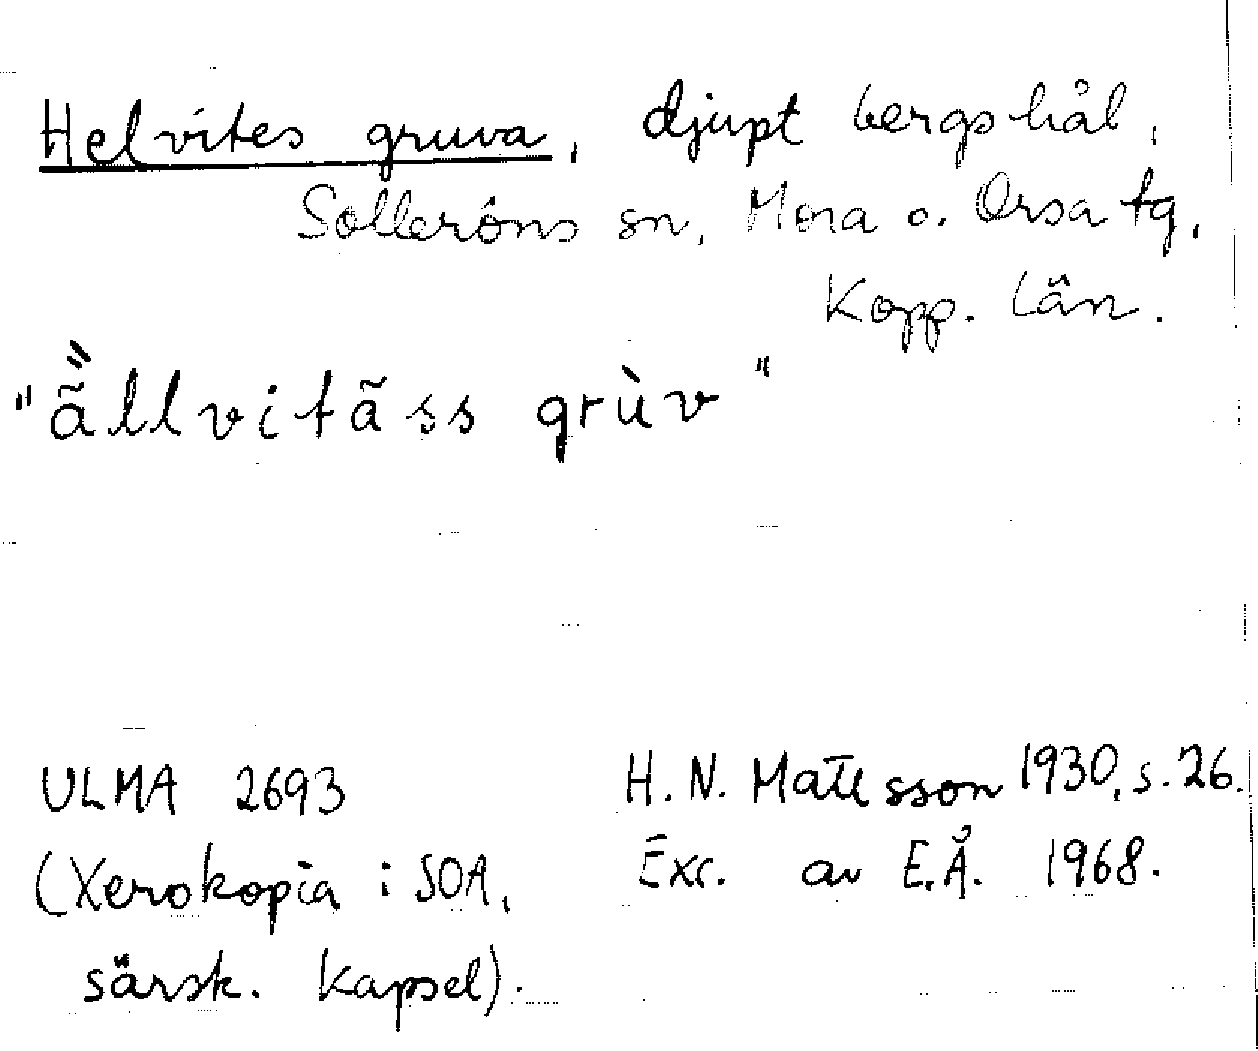 Helvites gruva, djupt bergshål,
Solleröns sn, Mora o. Orsa tg,
Kopp. län.
"ä̃̀llvitãss grùv"
ULMA 2693 H.N. Mattsson 1930, s. 26.
(Xerokopia i SOA, Exc. av E.Å. 1968.
särsk. kapsel).